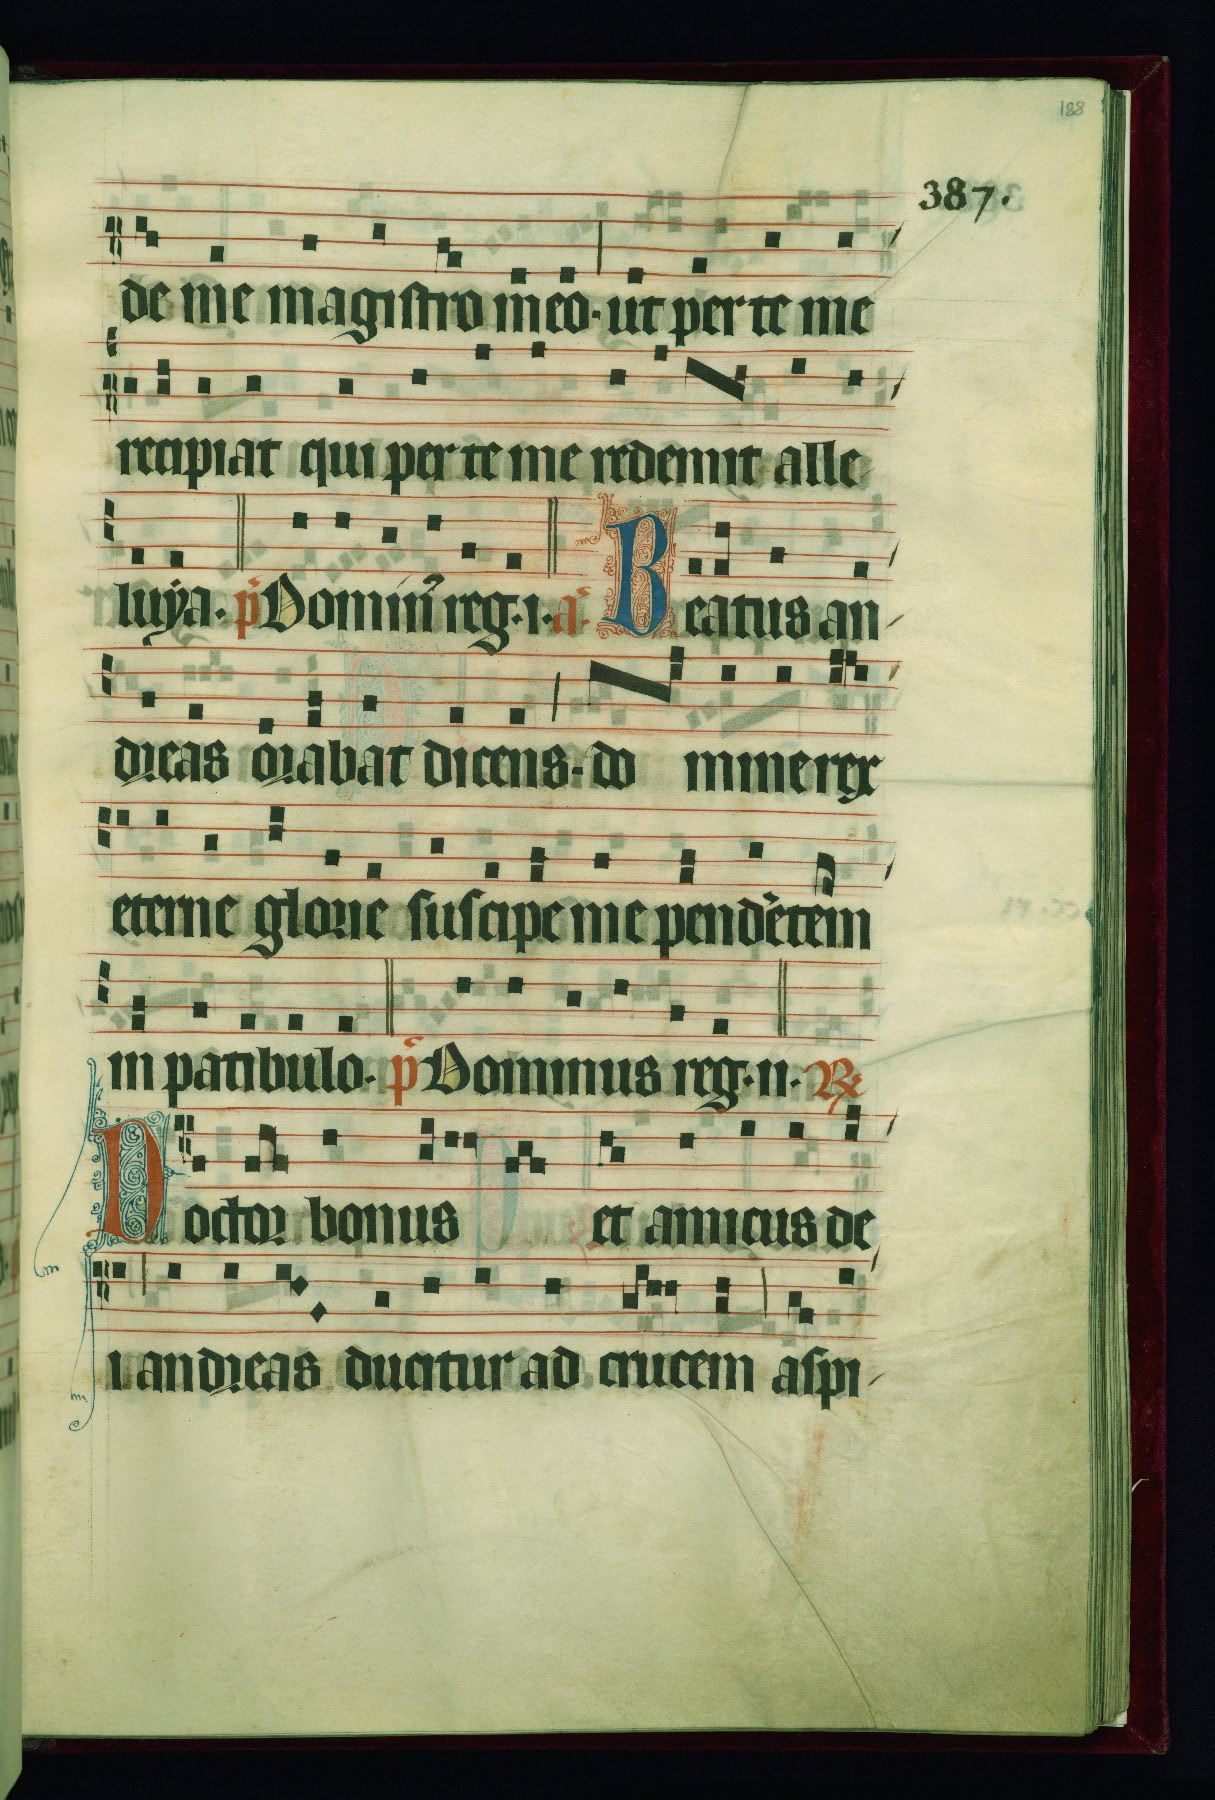 188
387.
de me magistro meo· ut per te me
recipiat qui per te me redemit alle
luya· p̄s Domin̄ reg·i· a̅· Beatus an
dreas orabat dicens· do mine rex
eterne glorie suscipe me pendētem
in patibulo· p̄s Dominus reg·ii· R̷
Doctor bonus et amicus de
i andreas ducitur ad crucem aspi